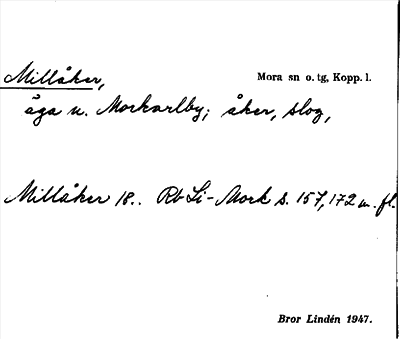 Millåker,
Mora sn o. tg, Kopp. l.
äga u. Morkarlby; åker, slog,
Millåker 18.. Rb Li-Mork s. 157, 172 m. fl.
Bror Lindén 1947.